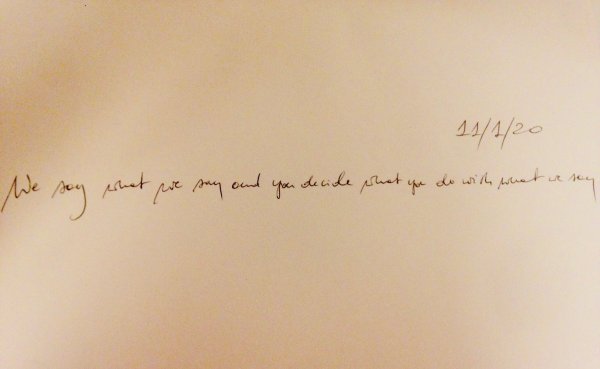 11/1/20
We say what we say and you decide what you do with what we say